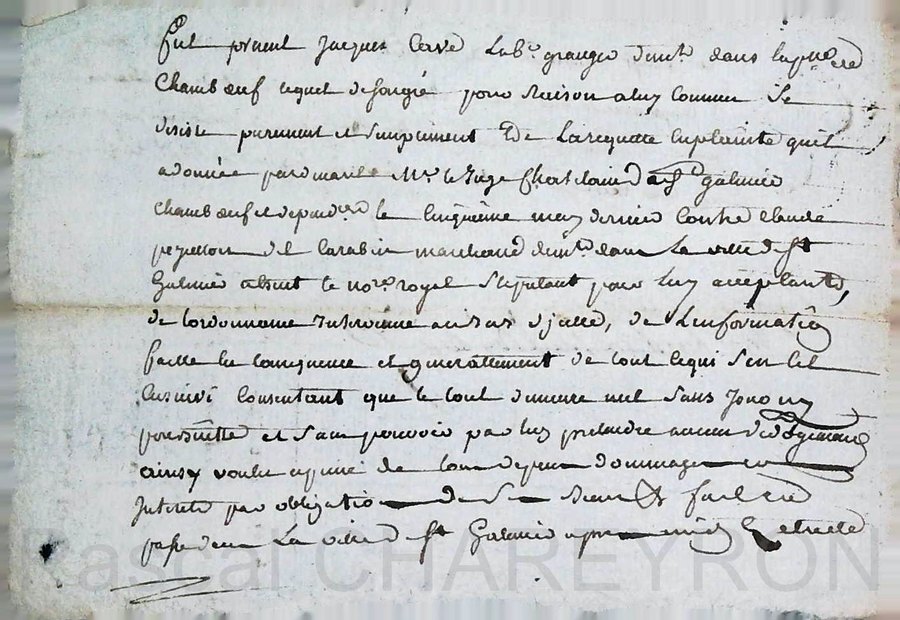 fut present Jacques Cerve Lab.r granger demt. dans la psse. de
Chambœuf lequel de son gré pour raison a luy connue se
desiste purement et simplement de La requette en plainte quil
a donnée pardevant Mr. le Juge Chatelain de st galmier
Chambœuf et dependces le cinquieme may dernier contre claude
peyresson dit Carabin marchand demt. dans La ville de st
Galmier absent le nore. royal stipulant pour luy acceptante,
de Lordonnance Intervenue au bas dicelle, de Linformation
faitte en consequence et generallement de tout ce qui sen est
ensuivi consentant que le tout demeure nul sans
poursuitte et sans pouvoir par luy pretendre aucun
ainsy voulu a peine de tous depens dommages
Interets par obligation de ses biens fait et
passé dans La ville de st Galmier apres midy Letude
Pascal CHAREYRON